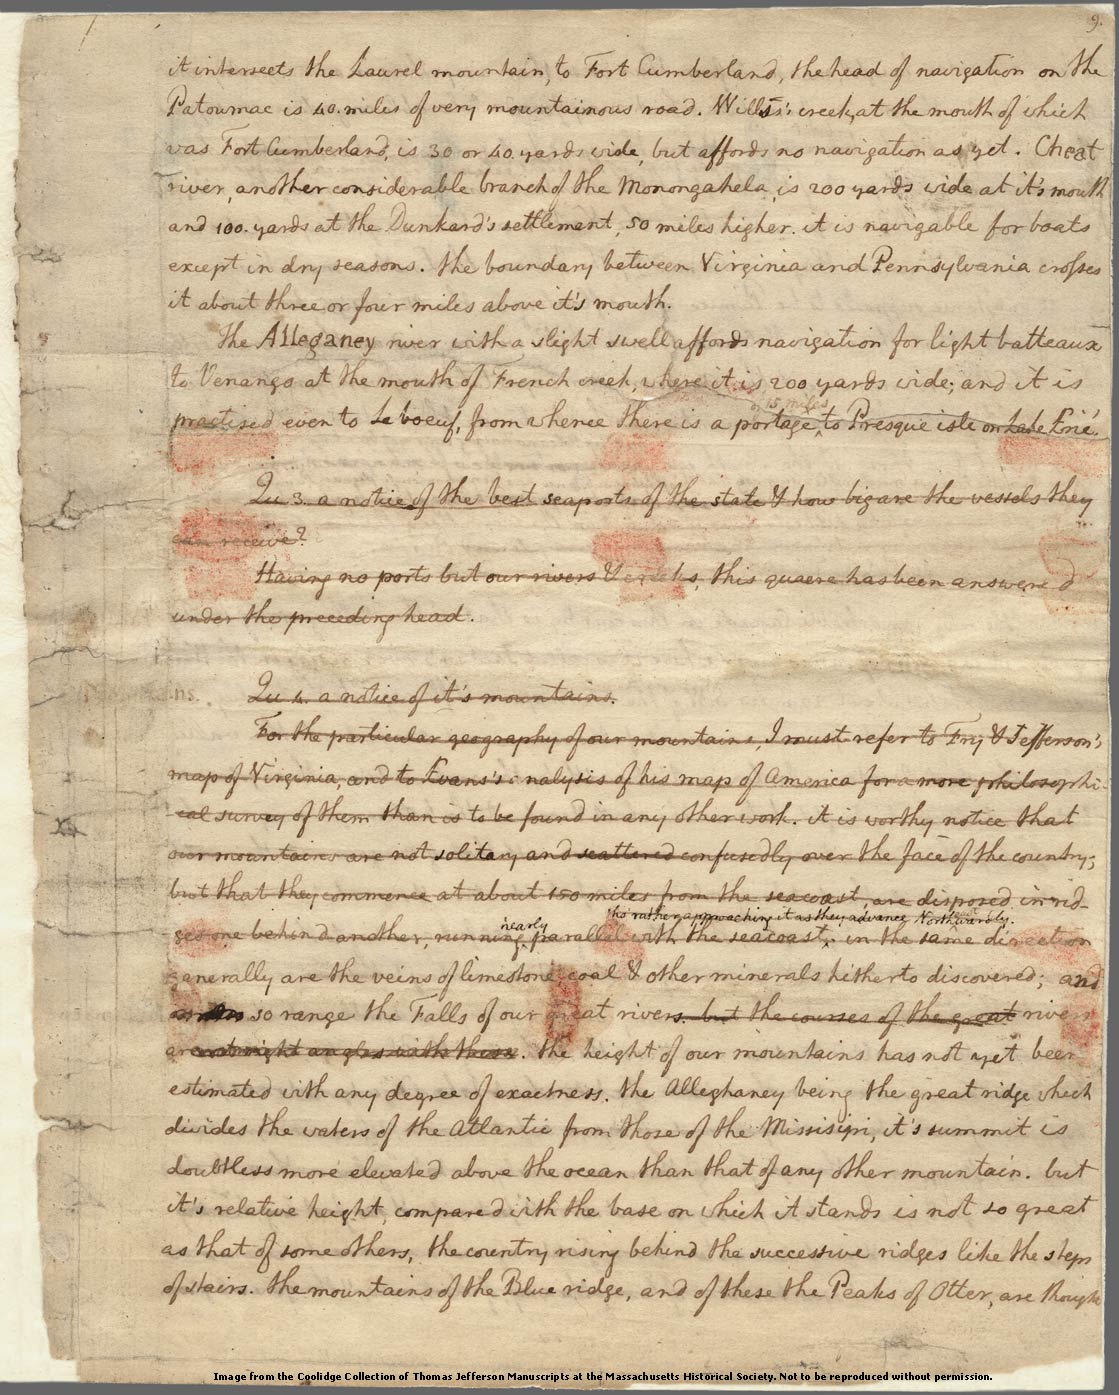 9.
it intersects the Laurel mountain, to Fort Cumberland, the head of navigation on the
Patowmac is 40. miles of very mountainous road. Wills's creek, at the mouth of which
was Fort Cumberland, is 30 or 40. yards wide, but affords no navigation as yet. Cheat
river, another considerable branch of the Monongahela, is 200 yards wide at it's mouth
and 100. yards at the Dunkard's settlement, 50 miles higher. it is navigable for boats
except in dry seasons. the boundary between Virginia and Pennsylvania crosses
it about three or four miles above it's mouth.
The Alleganey river with a slight swell affords navigation for light batteaux
to Venango at the mouth of French creek, where it is 200 yards wide; and it is
of 15. miles
practised even to Le boeuf, from whence there is a portage to Presque isle on Lake Erié.
Qu 3. a notice of the best seaports of the state & how big are the vessels they
can receive?
Having no ports but our rivers & creeks, this quaere has been answered
under the preceding head.
Qu 4. a notice of it's mountains.
For the particular geography of our mountains, I must refer to Fry & Jefferson's
map of Virginia, and to Evans's analysis of his map of America for a more philosophi-
cal survey of them than is to be found in any other work. it is worthy notice that
our mountains are not solitary and scattered confusedly over the face of the country;
but that they commence at about 150 miles from the seacoast, are disposed in rid-
nearly tho' rather approaching it as they advance Northwardly.
ges one behind another, running parallel with the seacoast, in the same direction
generally are the veins of limestone, coal & other minerals hitherto discovered; and
so range the Falls of our great rivers. but the courses of the great rivers
are at right angles with these. the height of our mountains has not yet been
estimated with any degree of exactness. the Alleghaney being the great ridge which
divides the waters of the Atlantic from those of the Missisipi, it's summit is
doubtless more elevated above the ocean than that of any other mountain. but
it's relative height, compared with the base on which it stands is not so great
as that of some others, the country rising behind the successive ridges like the steps
of stairs. the mountains of the Blue ridge, and of these the Peaks of Otter, are thought
Image from the Coolidge Collection of Thomas Jefferson Manuscripts at the Massachusetts Historical Society. Not to be reproduced without permission.